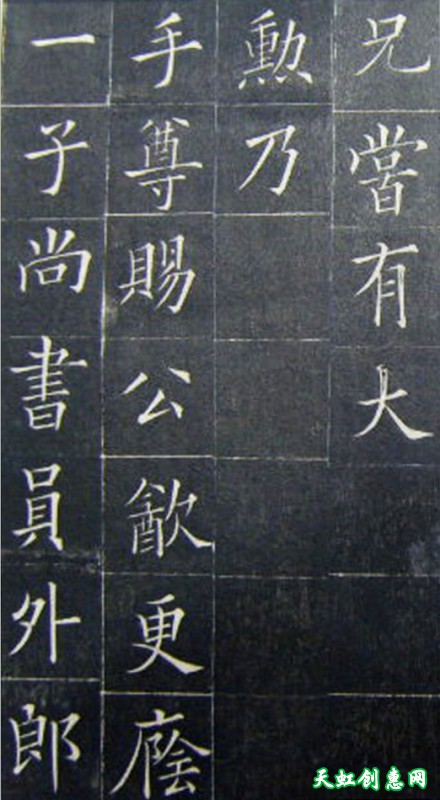 兄嘗有大
勲乃
手尊賜公㱃更廕
一子尚書員外郎
天虹创惠网